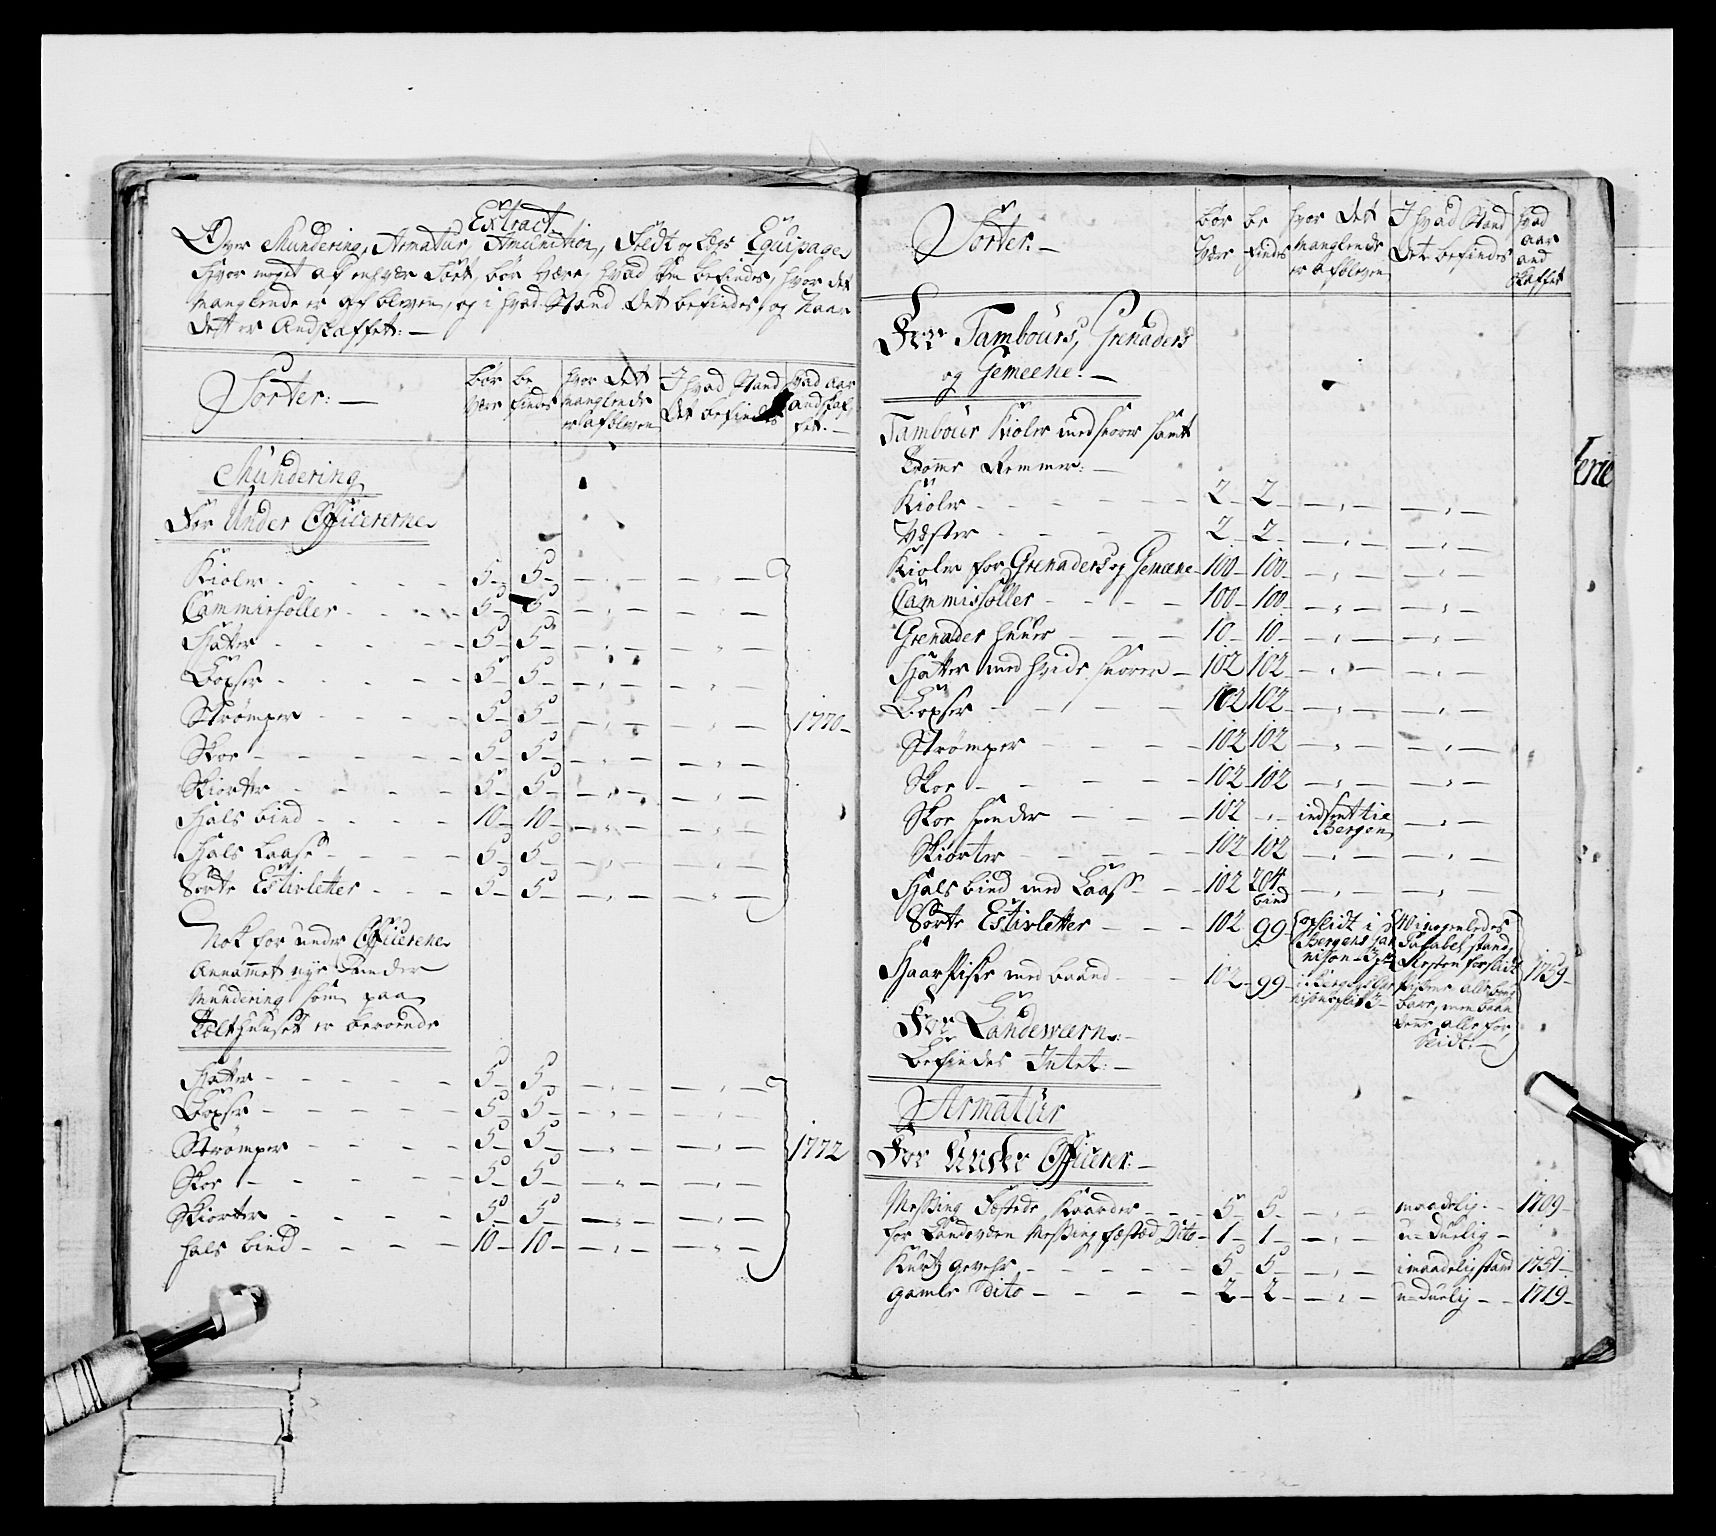 Extract
Over Mundering, Armatur, Amunition, Feldt og Legr Equipage
hvor meget af enhver Sort, bør være, hvad som befindes, hvor det
manglende er af bleven, og i hvad Stand det befindes, og naar
dett er Andskaffet: —
Sorter: — bør være be findes hvor dett manglende er afbleven I hvad Stand det befindes hvad aar andskaffet: —
Mundering
For Under Officererne
Kioler 5 5
Cammissoller 5 5
Hatter 5 5
Boxser 5 5
Strømper 5 5 1770
Skoe 5 5
Skiorter 5 5
Hals bind 10 10
Hals Laase 5 5
Sorte Estivletter 5 5
Nok for under Officerene
Annammet nye Under
Mundering som paa
Tølthuuset er beroende
Hatter 5 5
Boxser 5 5
Strømper 5 5 1772
Skoe 5 5
Skiorter 5 5
Hals bind 10 10
Sorter: — bør være be findes hvor dett manglende er afbleven I hvad Stand det befindes hvad aar and skaffet
For Tambours, Grenaders
og Gemeene: —
Tambour Kioler med snorer samt
Tromme Remmer: —
Kioler 2 2
Vester 2 2
Kioler for Grenaders og Gemeene 100 100
Cammissoller 100 100
Grenader huuer 10 10
Hatter med hvide snorer 102 102
Boxser 102 102
Strømper 102 102
Skoe 102 102
Skoe spender 102 indsent til Bergen
Skiorter 102 102
Hals bind med Laass 102 204 bind
Sorte Estivletter 102 99
Haar Piske med baand 102 99 1759
For Landeværn: —
befindes Intet: —
Armatur
For Under Officerer: —
Messing Fæstede Kaarder 5 5 maadelig 1709
for Landeværn Messing fæsted Dito 1 1 u=duelig
Kurtz gevehr 5 5 i maadelig stand 1751
gamle Dito 2 2 u=duelig 1719